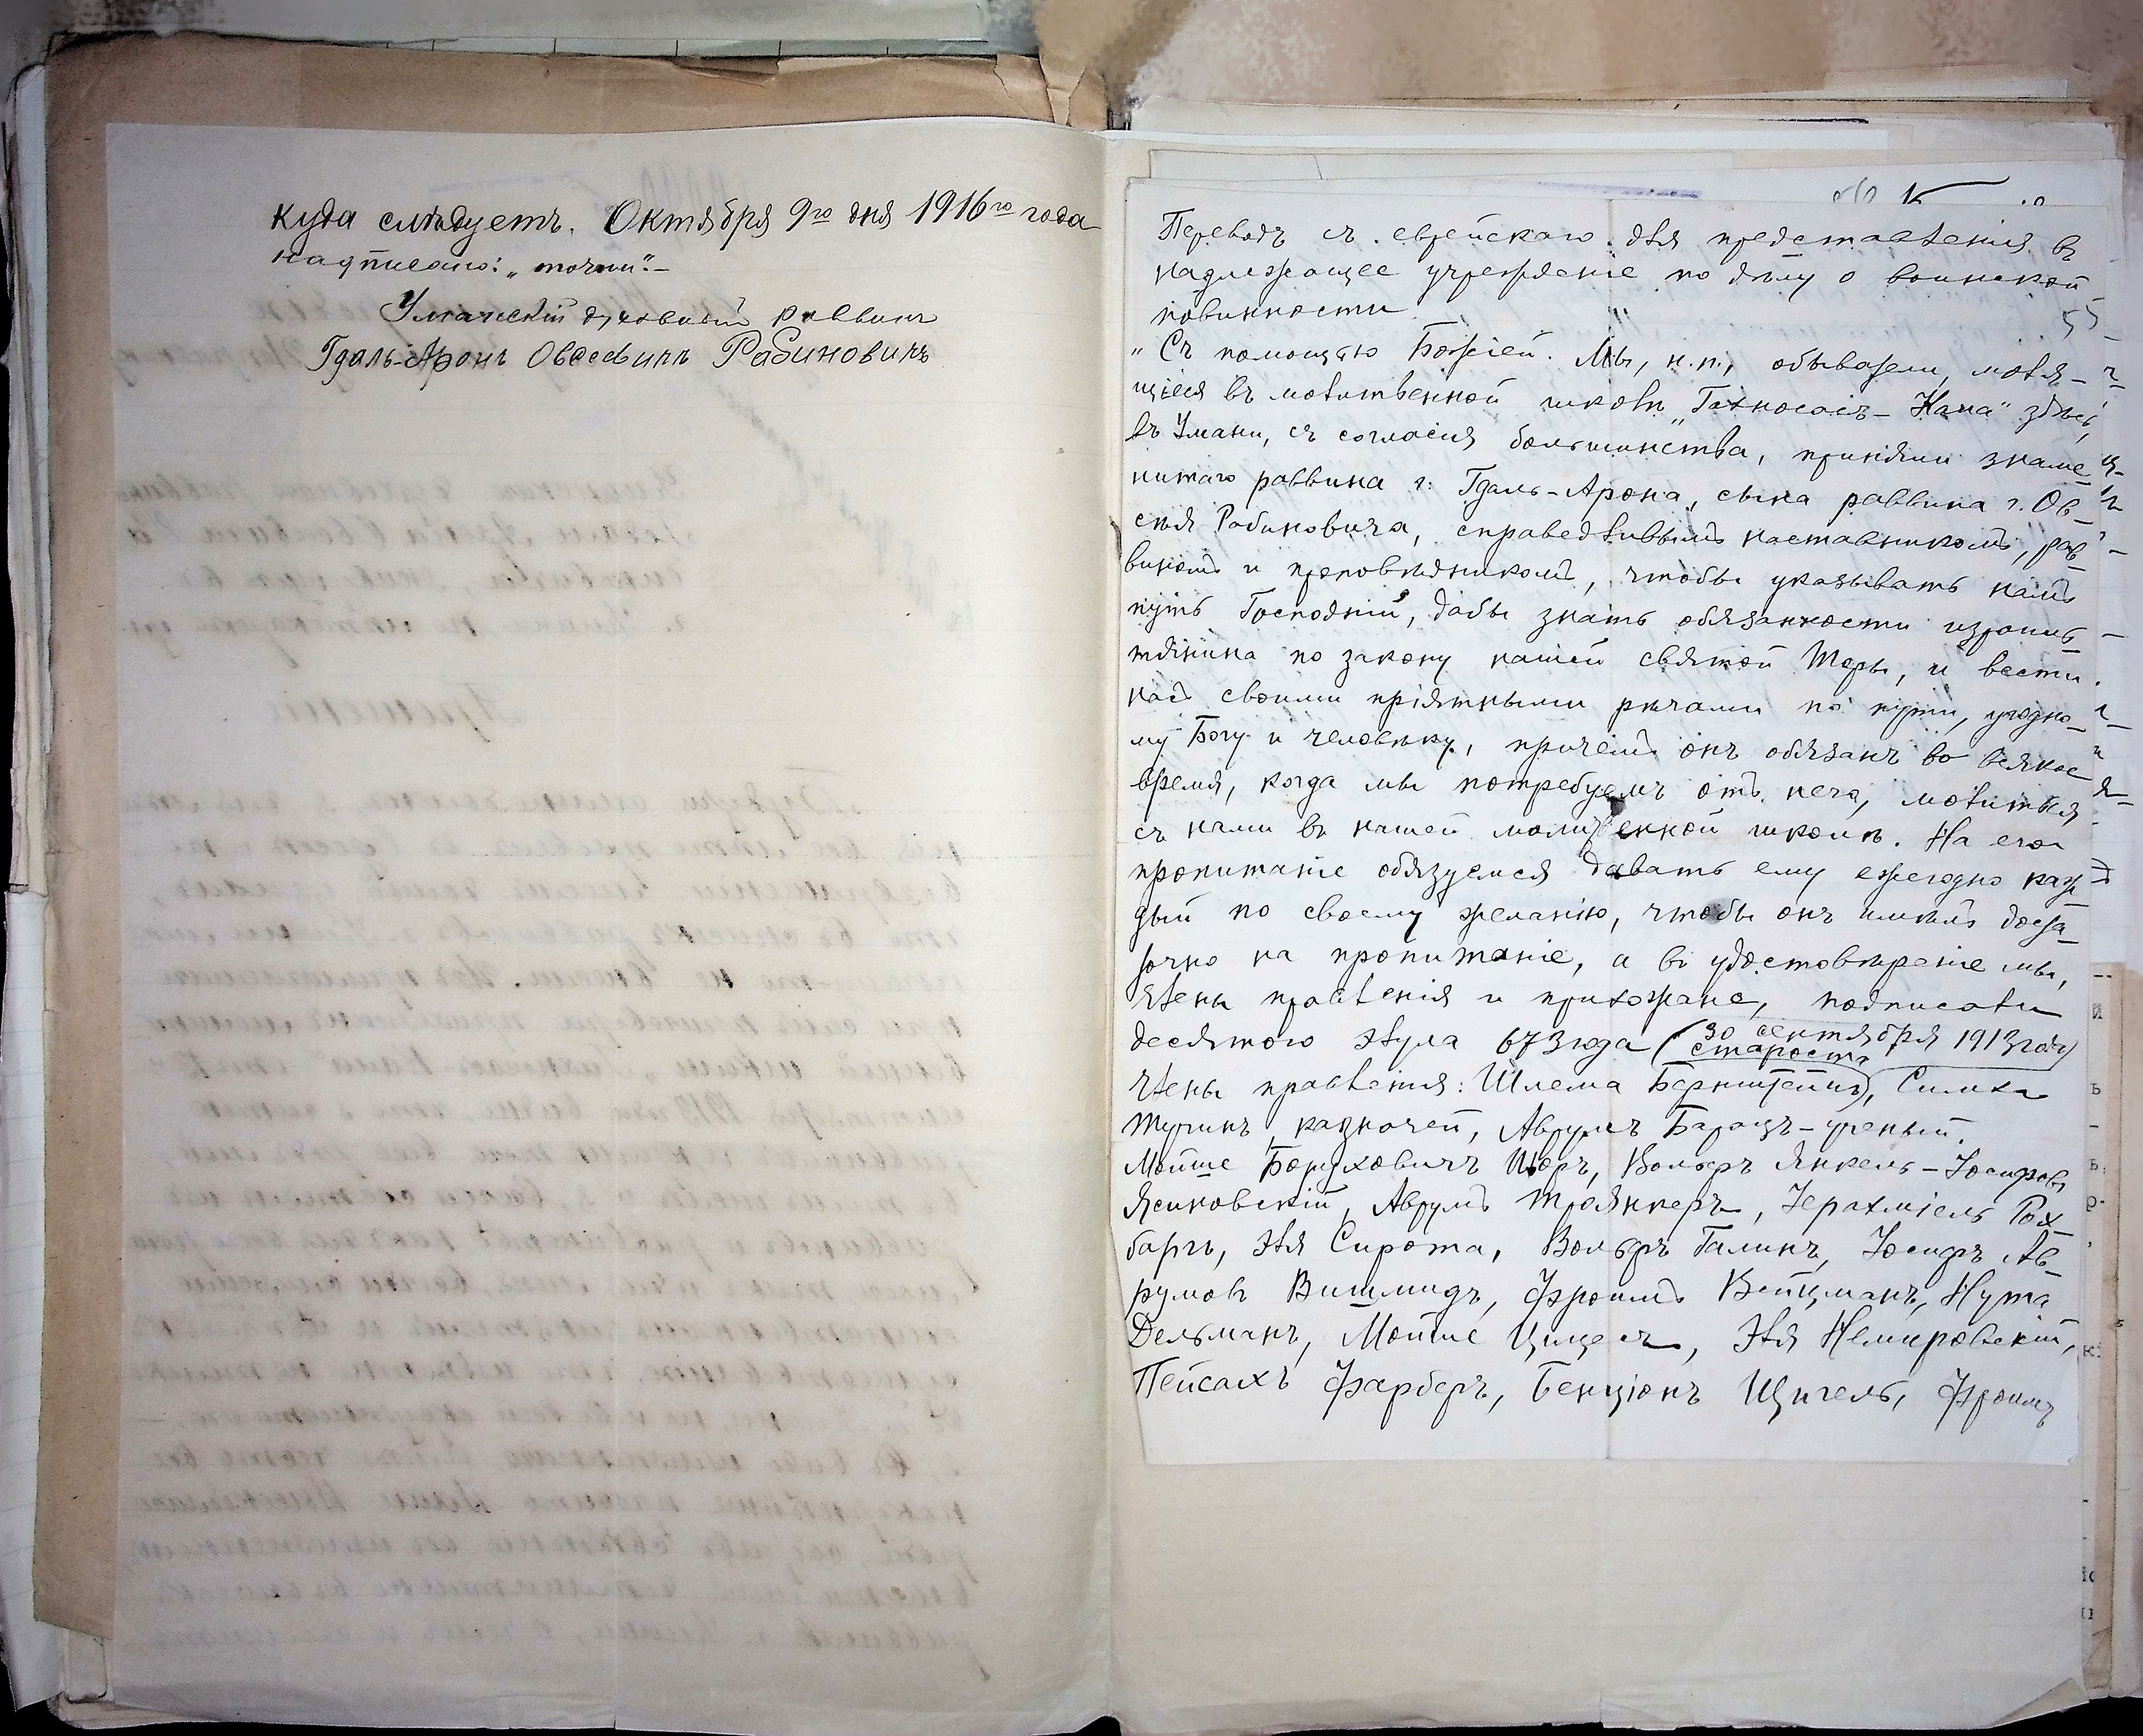 куда слѣдуетъ. Октября 9го дня 1916го года
надписано: „точки“.–
Уманскій духовный раввинъ
Гдаль-Аронъ Овсеевичъ Рабиновичъ
Переводъ съ еврейскаго для представленія въ
надлежащее учрежденіе по дѣлу о воинской
повинности.
55
„Съ помощью Божіей. Мы, н.п., обыватели, моля-
щіеся въ молитвенной школѣ „Гахносасъ-Кала“ здѣсь,
въ Умани, съ согласія большинства, приняли знаме
нитаго раввина г: Гдаль-Арона, сына раввина г. Ов-
сея Рабиновича, справедливымъ наставникомъ, рав-
виномъ и проповѣдникомъ, чтобы указывать намъ
путь Господній, дабы знать обязанности израиль-
тянина по закону нашей святой Торы, и вести
насъ своими пріятными рѣчами по пути, угодно-
му Богу и человѣку, причемъ онъ обязанъ во всякое
время, когда мы потребуемъ отъ него, молиться
съ нами въ нашей молитвенной школѣ. На его
пропитаніе обязуемся давать ему ежегодно каж-
дый по своему желанію, чтобы онъ имѣлъ доста-
точно на пропитаніе, а въ удостовѣреніе мы,
члены правленія и прихожане, подписали
десятого Элула 673 года (30 сентября 1913 года)
староста
члены правленія: Шлема Бернштейнъ), Симха
Турчинъ казначей, Аврумъ Барацъ-ученый.
Мойше Боруховичъ Шоръ, Вольфъ Янкель-Іосифовъ
Ясиновскій, Аврумъ Троянкеръ, Іерахміель Рох-
баргъ, Эля Сирота, Вольфъ Галинъ, Іосифъ Ав-
румовъ Вишмидъ, Фроимъ Вейцманъ, Нута
Дельманъ, Мойше Цицесъ, Эля Немировскій,
Пейсахъ Фарберъ, Бенціонъ Щигель, Фроимъ